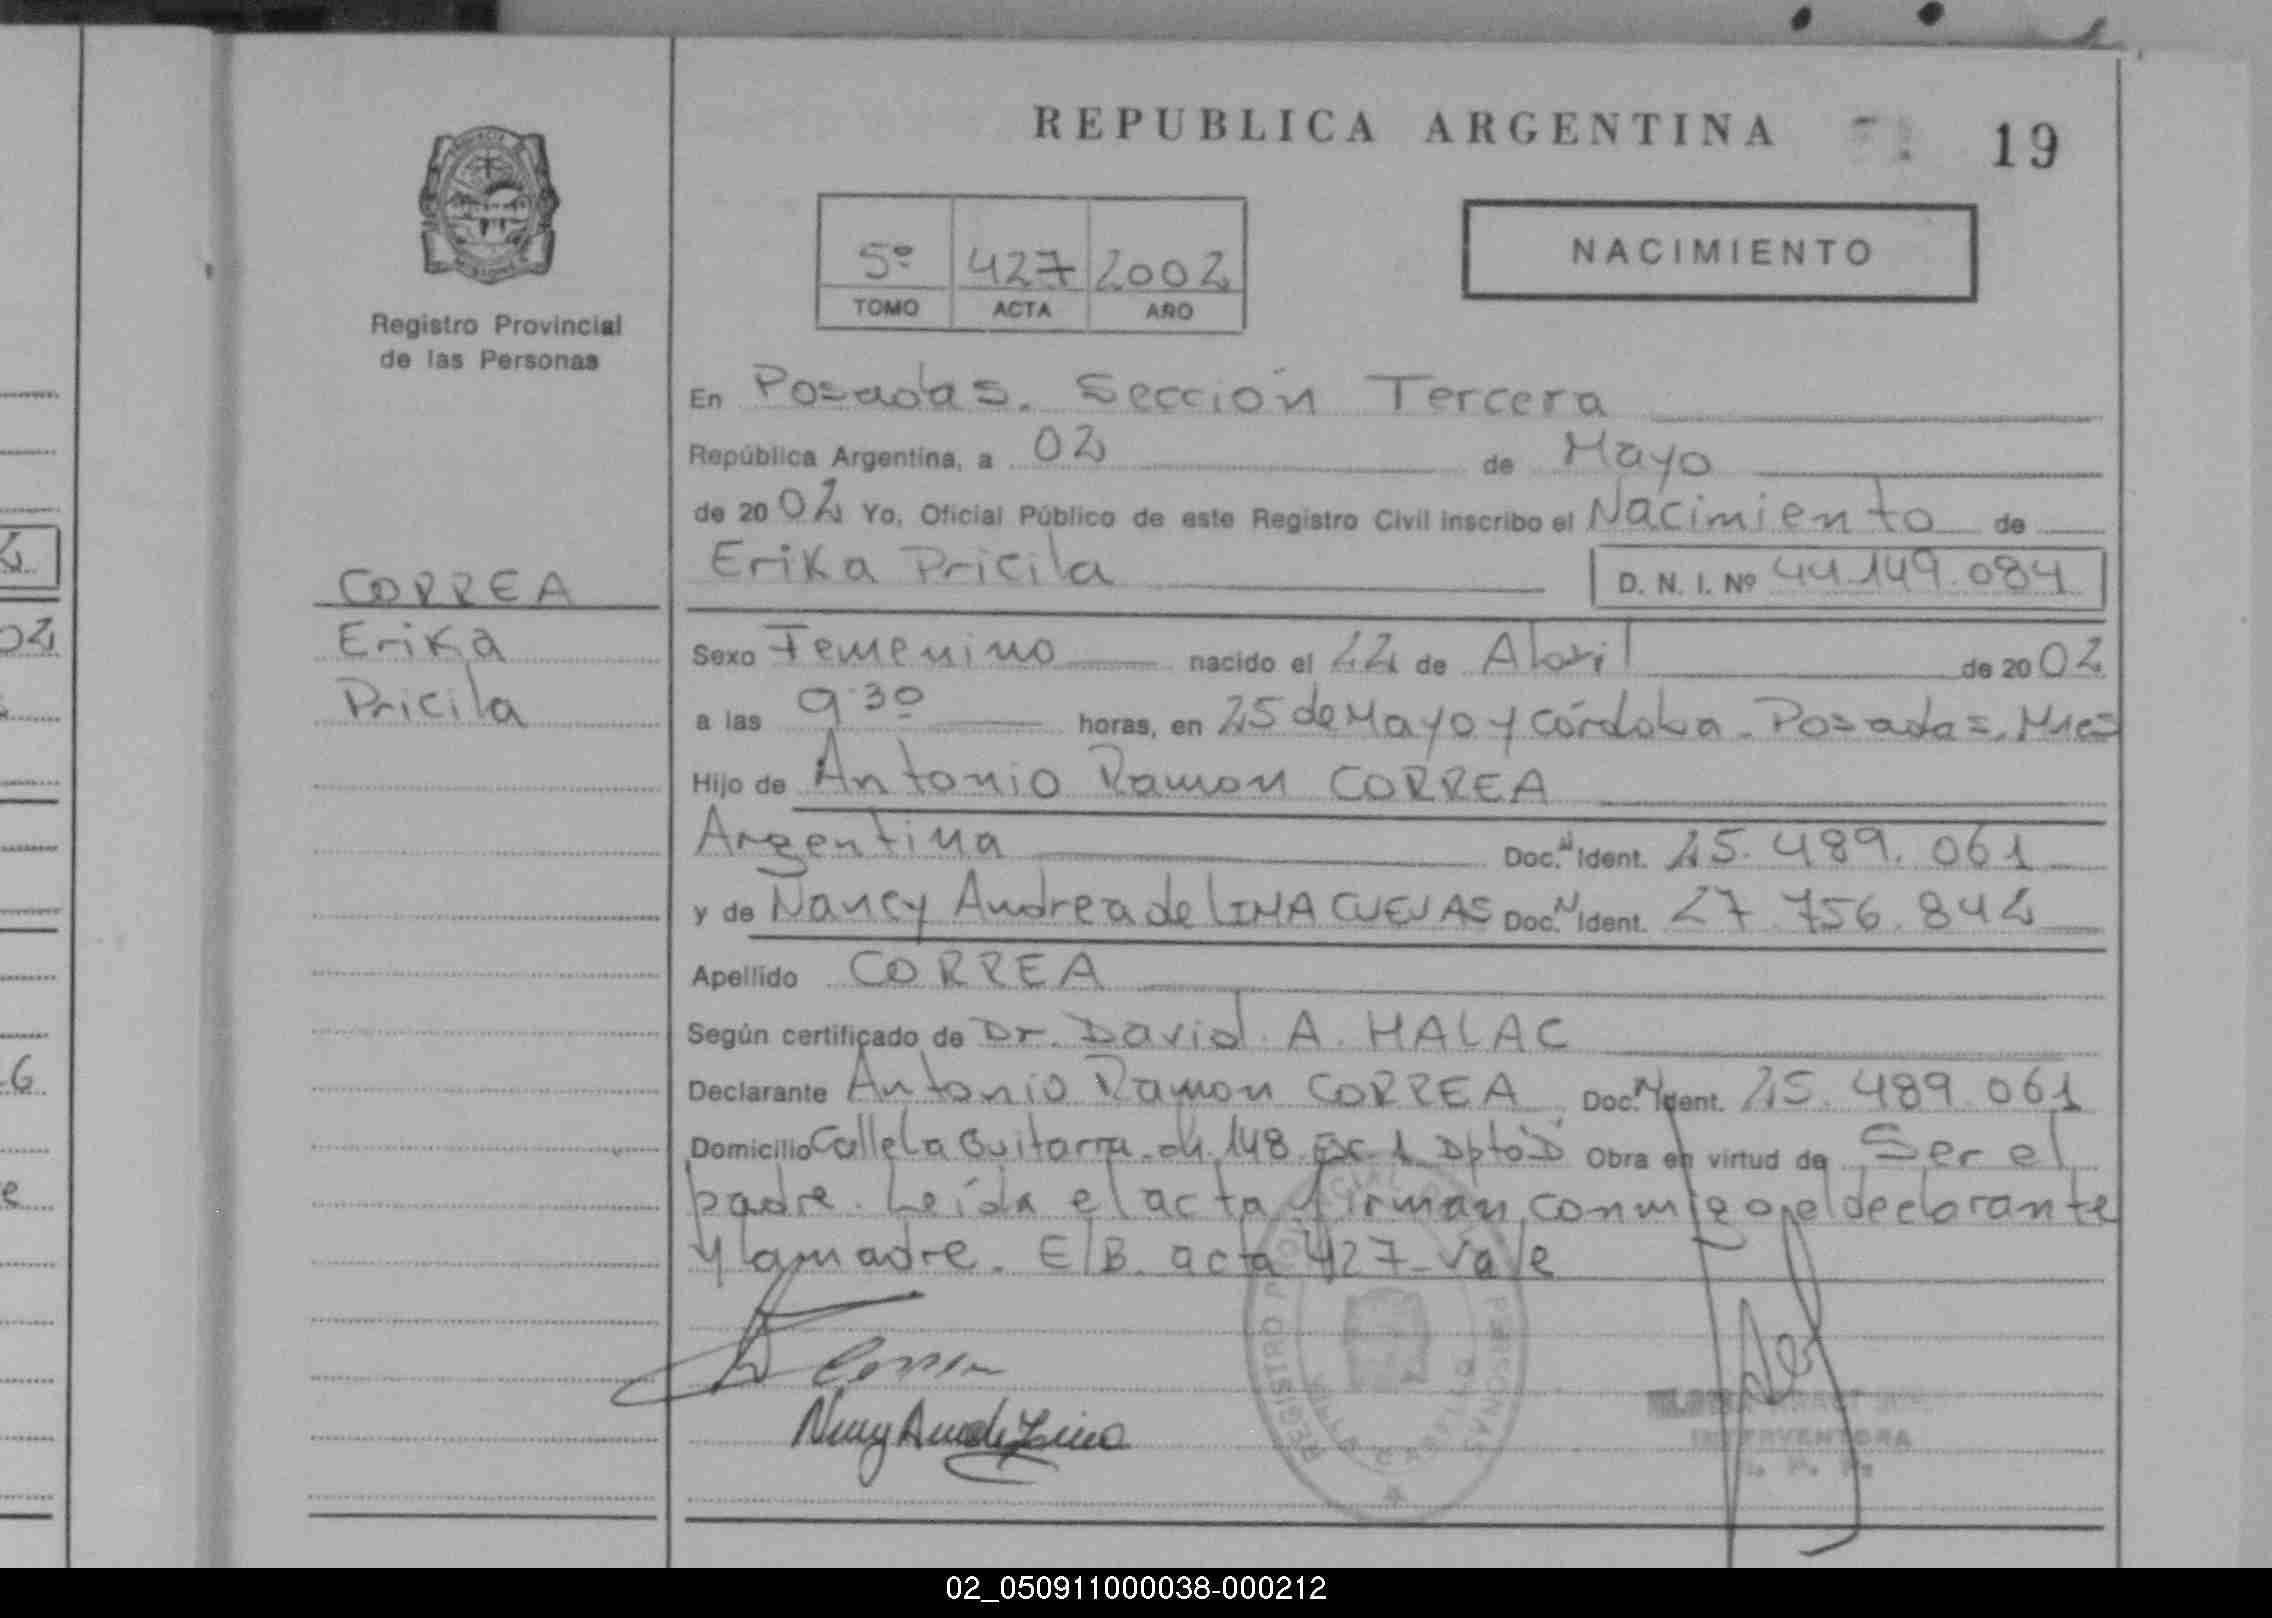 REPUBLICA ARGENTINA
19
5º 427 2002
TOMO ACTA AÑO
NACIMIENTO
Registro Provincial
de las Personas
En Posadas. Sección Tercera
República Argentina, a 02 de Mayo
de 2002 Yo, Oficial Público de este Registro Civil inscribo el Nacimiento de
Erika Pricila D. N. I. Nº 44.149.084
CORREA
Erika
Pricila
Sexo Femenino nacido el 22 de Abril de 2002
a las 9.30 horas, en 25 de Mayo y Córdoba. Posadas. Mnes
Hijo de Antonio Ramon CORREA
Argentina Doc. N Ident. 25.489.061
y de Nancy Andrea de LIMA CUEVAS Doc. N Ident. 27.756.842
Apellido CORREA
Según certificado de Dr. David A. HALAC
Declarante Antonio Ramon CORREA Doc. N Ident. 25.489.061
Domicilio Calle La Guitarra. ch. 148 Esc. 1 Dpto "D" Obra en virtud de Ser el
padre. Leída el acta firman conmigo el declarante
y la madre. E/B. acta 427. Vale
INTERVENTORA
02_050911000038-000212